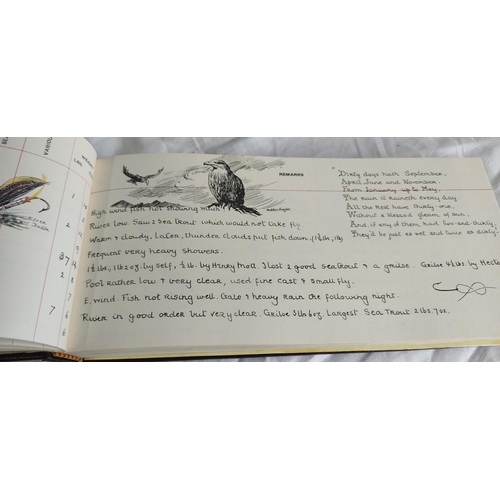 REMARKS
Golden Eagle
High wind fish not showing much.
River low. Saw 2 Sea trout which would not take fly
Warm & cloudy, later, thunder clouds put fish down. (1½lb, 1lb)
Frequent very heavy showers.
1½lbs, 1lb 2oz. by self, ½lb. by Henry Moll. I lost 2 good seatrout & a grilse. Grilse 4½lbs by Hecto
Pool rather low & very clear, used fine cast & small fly.
E. wind. Fish not rising well. Gale & heavy rain the following night.
River in good order but very clear. Grilse 3lb 6oz. Largest Sea Trout 2lbs. 7oz.
"Dirty days hath September,
April June and November.
From January up to May,
The rain it raineth every day
All the rest have thirty-one,
Without a blessed gleam of sun,
And if any of them had two-and-thirty,
They'd be just as wet and twice as dirty.